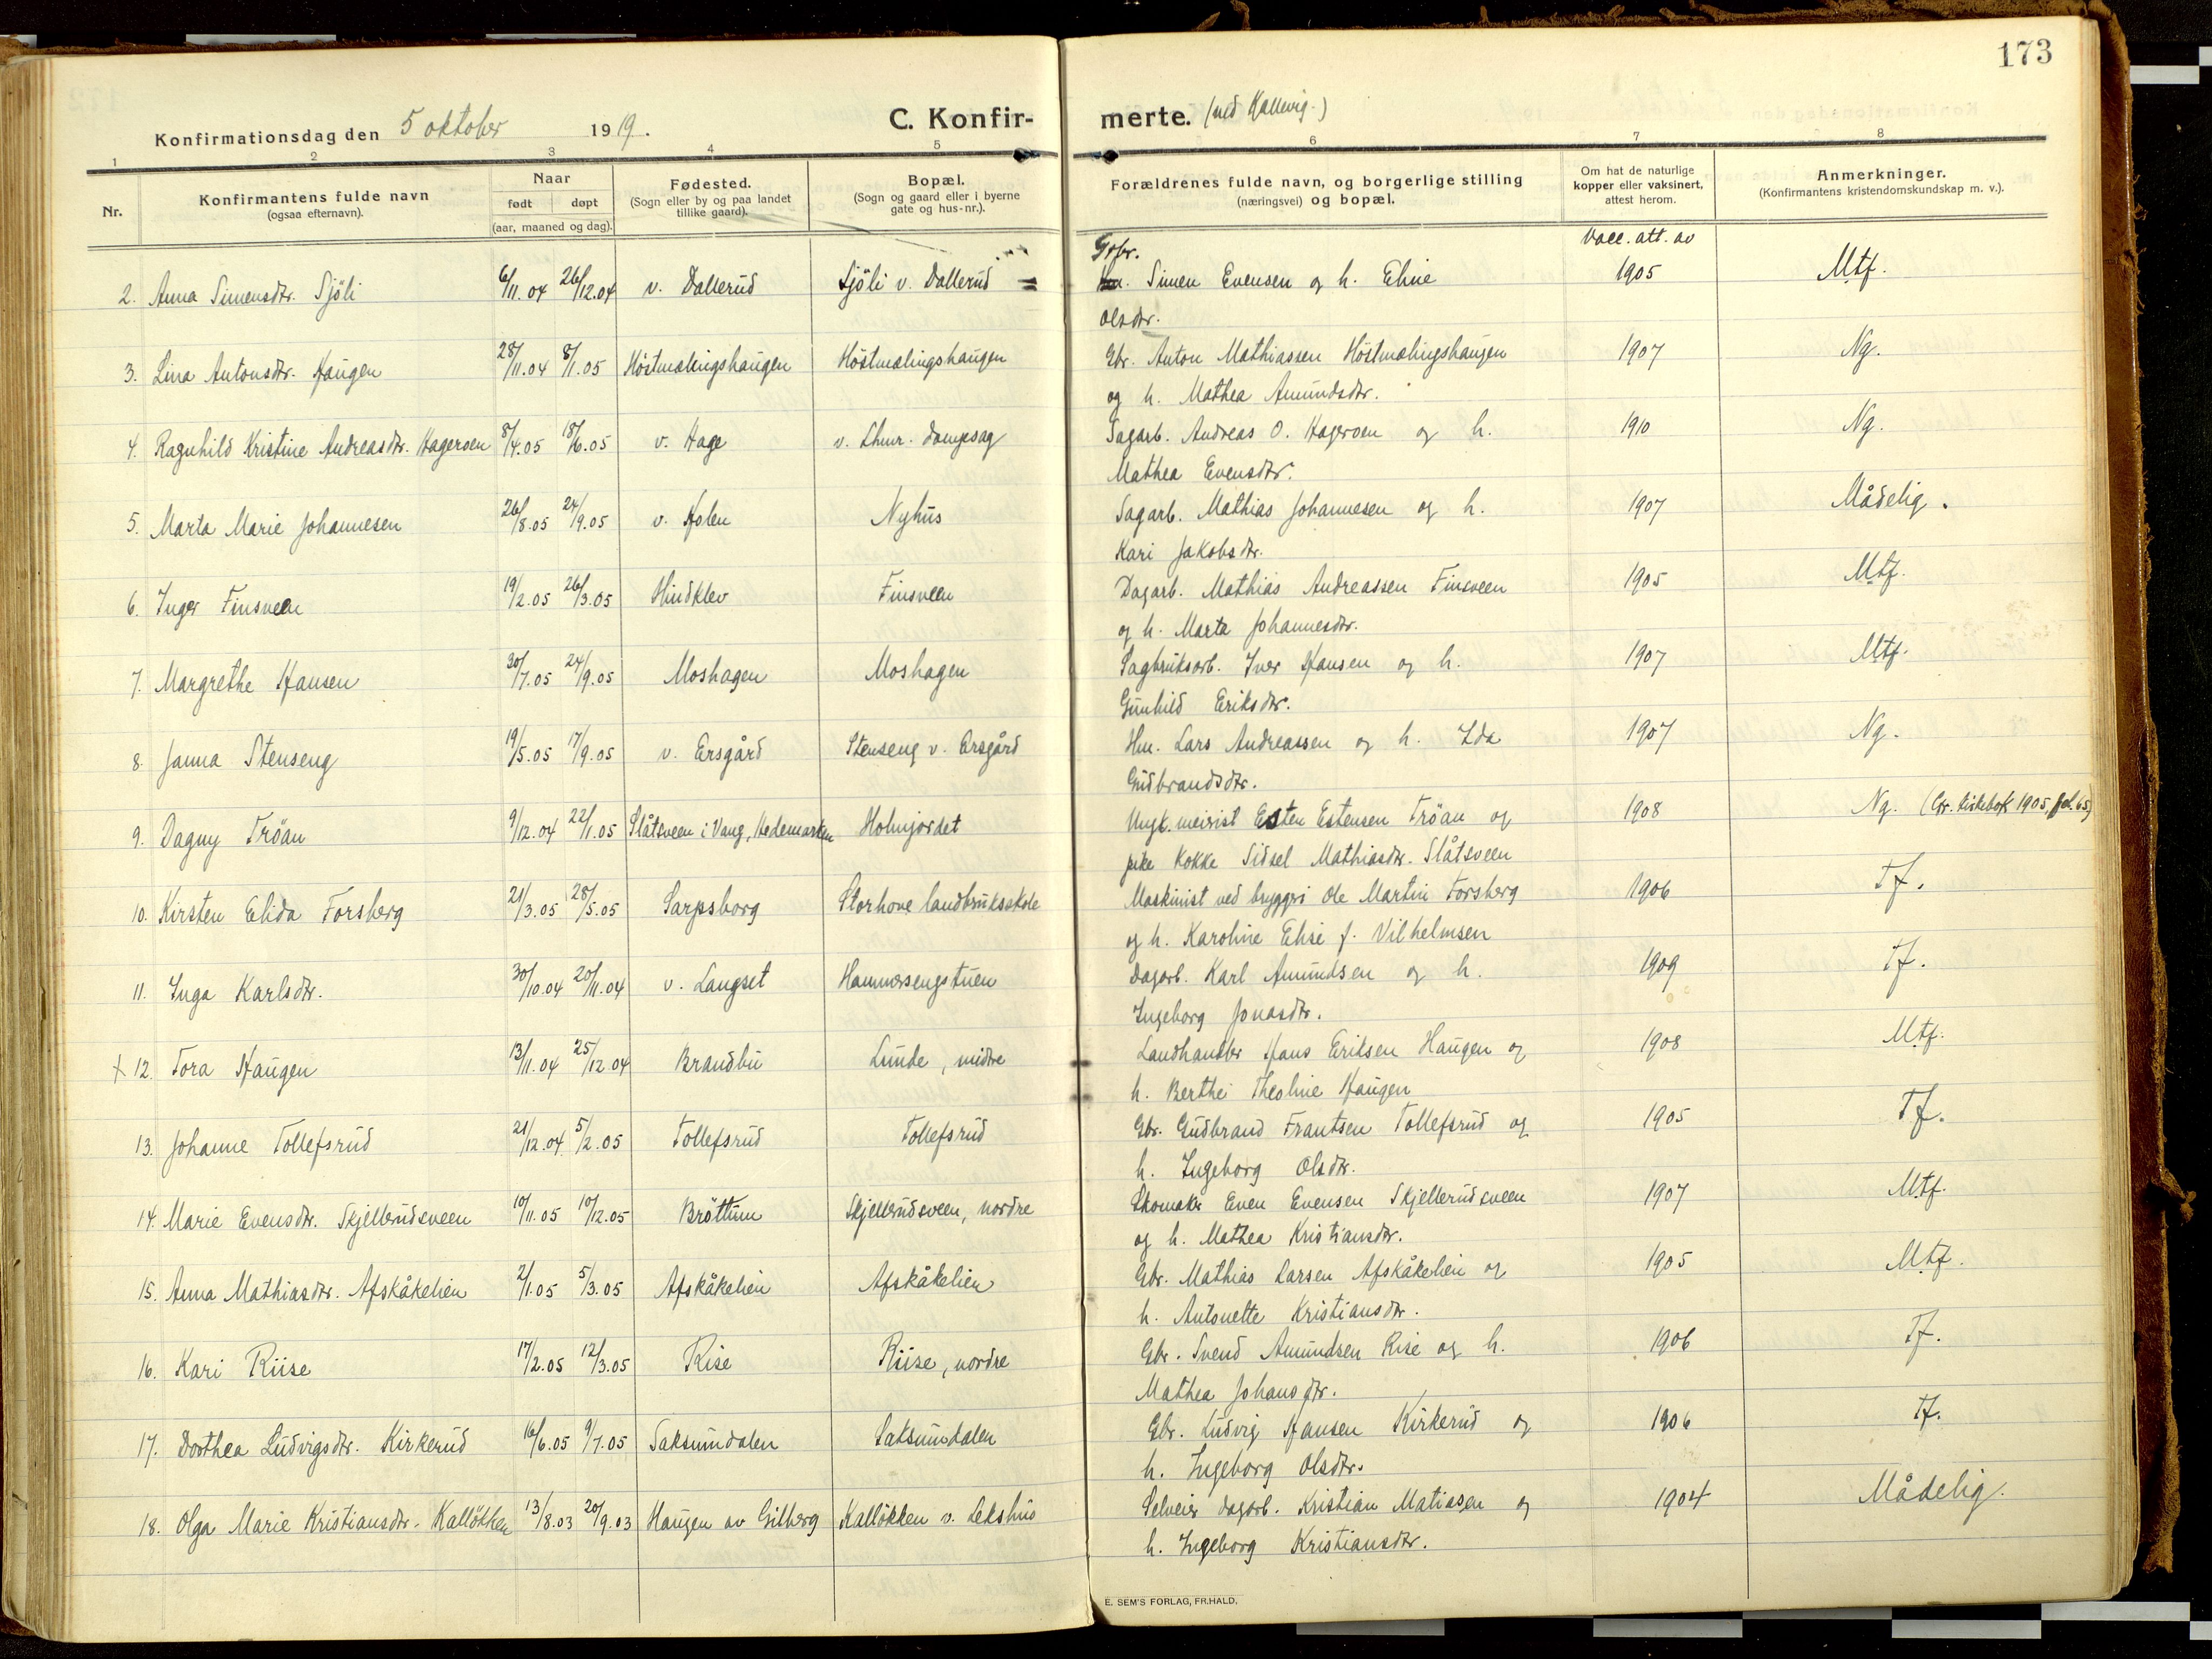 173
Konfirmationsdag den 5 oktober 1919.
C. Konfirmerte. (ved Kallevig.)
1 2 3 4 5 6 7 8
Nr. | Konfirmantens fulde navn (ogsaa efternavn). | Naar født døpt (aar, maaned og dag). | Fødested. (Sogn eller by og paa landet tillike gaard). | Bopæl. (Sogn og gaard eller i byerne gate og hus-nr.). | Forældrenes fulde navn, og borgerlige stilling (næringsvei) og bopæl. | Om hat de naturlige kopper eller vaksinert, attest herom. | Anmerkninger. (Konfirmantens kristendomskundskap m. v.).
Vacc. att. av
Grbr.
2. Anna Simensdtr. Sjöli 6/11.04 26/12.04 v. Dallerud Sjöli v. Dallerud Simen Evensen og h. Eline 1905 Mtf.
Olsdtr.
3. Lina Antonsdtr. Haugen 28/11.04 8/1.05 Höstmælingshaugen Höstmælingshaugen Gbr. Anton Mathiassen Höstmælingshaugen 1907 Ng.
og h. Mathea Amundsdtr.
4. Ragnhild Kristine Andreasdtr. Hageroen 8/4.05 18/6.05 v. Hage v. Lhmr. dampsag Sagarb. Andreas O. Hageroen og h. 1910 Ng.
Mathea Evensdtr.
5. Marta Marie Johannesen 26/8.05 24/9.05 v. Holen Nyhus Sagarb. Mathias Johannesen og h. 1907 Mådelig.
Kari Jakobsdtr.
6. Inger Finsveen 19/2.05 26/3.05 Hindklev Finsveen Dagarb. Mathias Andreassen Finsveen 1905 Mtf.
og h. Marta Johannesdtr.
7. Margrethe Hansen 30/7.05 24/9.05 Moshagen Moshagen Sagbruksarb. Iver Hansen og h. 1907 Mtf.
Gunhild Eriksdtr.
8. Janna Stenseng 19/5.05 17/9.05 v. Ersgård Stenseng v. Ersgård Hm. Lars Andreassen og h. Ida 1907 Ng.
Gudbrandsdtr.
9. Dagny Tröan 9/12.04 22/1.05 Slåtsveen i Vang, Hedemarken Holmjordet Ungk. meirist Esten Estensen Tröan og 1908 Ng. (Gr. kirkebok 1905, fol. 65)
pike kokke Sidsel Mathiasdtr. Slåtsveen
10. Kirsten Elida Forsberg 21/3.05 28/5.05 Sarpsborg Storhove landbruksskole Maskinist ved bryggri Ole Martin Forsberg 1906 Tf.
og h. Karoline Elise f. Vilhelmsen
11. Inga Karlsdtr. 30/10.04 20/11.04 v. Langset Hammersengstuen Dagarb. Karl Amundsen og h. 1909 Tf.
Ingeborg Jonasdtr.
+ 12. Tora Haugen 13/11.04 25/12.04 Brandbu Lunde, midtre Landhandler Hans Eriksen Haugen og 1908 Mtf.
h. Berthe Theoline Haugen
13. Johanne Tollefsrud 21/12.04 5/2.05 Tollefsrud Tollefsrud Gbr. Gudbrand Frantsen Tollefsrud og 1905 Tf.
h. Ingeborg Olsdtr.
14. Marie Evensdtr. Skjellerudsveen 10/11.05 10/12.05 Bröttum Skjellerudsveen, nordre Skomaker Even Evensen Skjellerudsveen 1907 Mtf.
og h. Mathea Kristiansdtr.
15. Anna Mathiasdtr. Afskåkelien 2/1.05 5/3.05 Afskåkelien Afskåkelien Gbr. Mathias Larsen Afskåkelien og 1905 Mtf.
h. Antonette Kristiansdtr.
16. Kari Riise 17/2.05 12/3.05 Rise Riise, nordre Gbr. Svend Amundsen Rise og h. 1906 Tf.
Mathea Johansdtr.
17. Dorthea Ludvigsdtr. Kirkerud 16/6.05 9/7.05 Saksumdalen Saksumdalen Gbr. Ludvig Hansen Kirkerud og 1906 Tf.
h. Ingeborg Olsdtr.
18. Olga Marie Kristiansdtr. Kallökken 13/8.03 20/9.03 Haugen av Gilberg Kallökken v. Lekshus Selveier dagarb. Kristian Matiasen og 1904 Mådelig.
h. Ingeborg Kristiansdtr.
E. SEM'S FORLAG, FR.HALD.